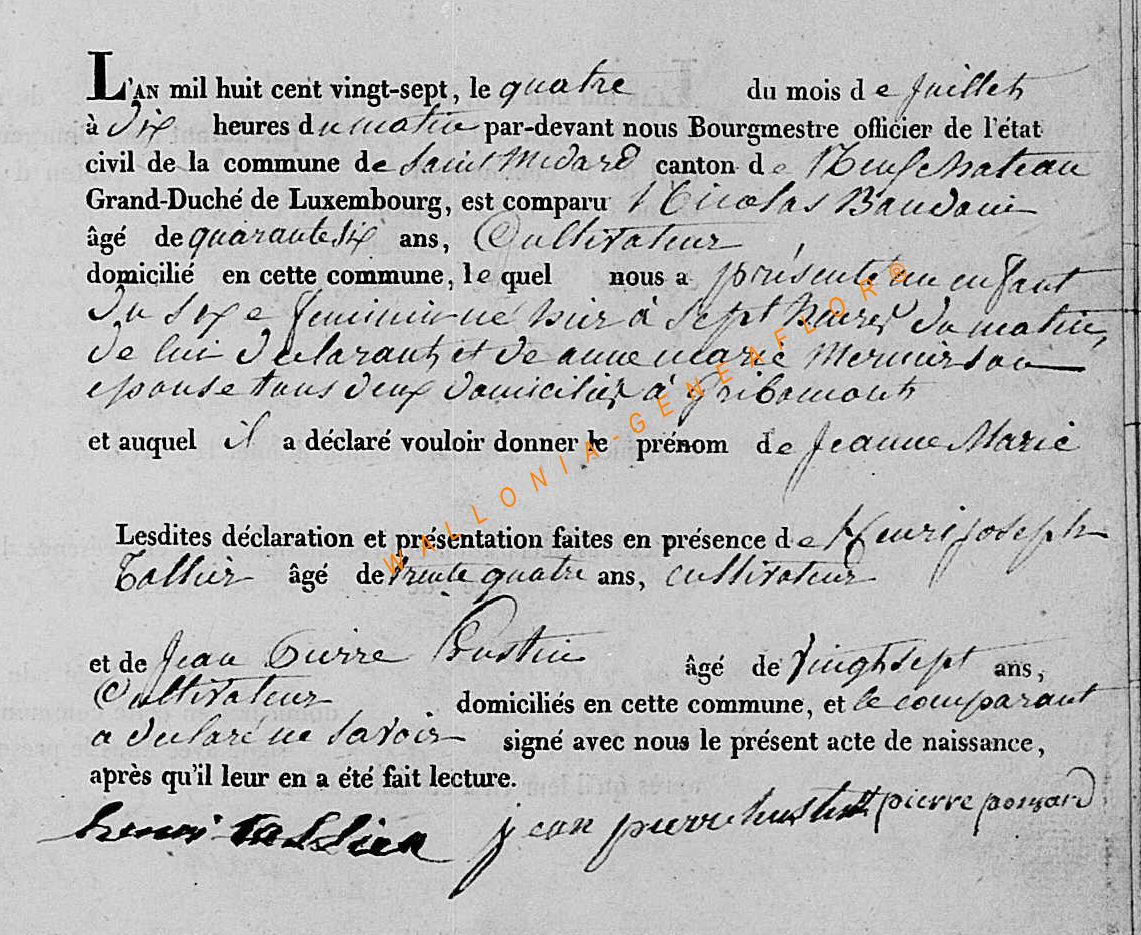 L'AN mil huit cent vingt-sept, le quatre du mois de juillet
à dix heures du matin par-devant nous Bourgmestre officier de l'état
civil de la commune de Saint Medard canton de Neufchateau
Grand-Duché de Luxembourg, est comparu Nicolas Baudoin
âgé de quarante six ans, Cultivateur
domicilié en cette commune, lequel nous a présenté un enfant
du sexe feminin ne hier à sept heures du matin,
de lui declarant et de anne marie
epouse tous deux domicilies à gribomont
et auquel il a déclaré vouloir donner le prénom de Jeanne Marie
Lesdites déclaration et présentation faites en présence de Henri joseph
Tallier âgé de trente quatre ans, cultivateur
et de Jean Pierre âgé de vingt sept ans,
Cultivateur domiciliés en cette commune, et le comparant
a declaré ne savoir signé avec nous le présent acte de naissance,
après qu'il leur en a été fait lecture.
henri tallier jean pierre pierre ponsard
WALLONIA-GENEAFLOR®